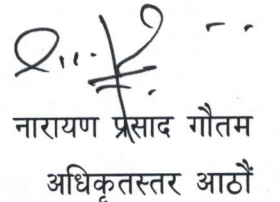 नारायण प्रसाद गौतम
अधिकृतस्तर आठौं